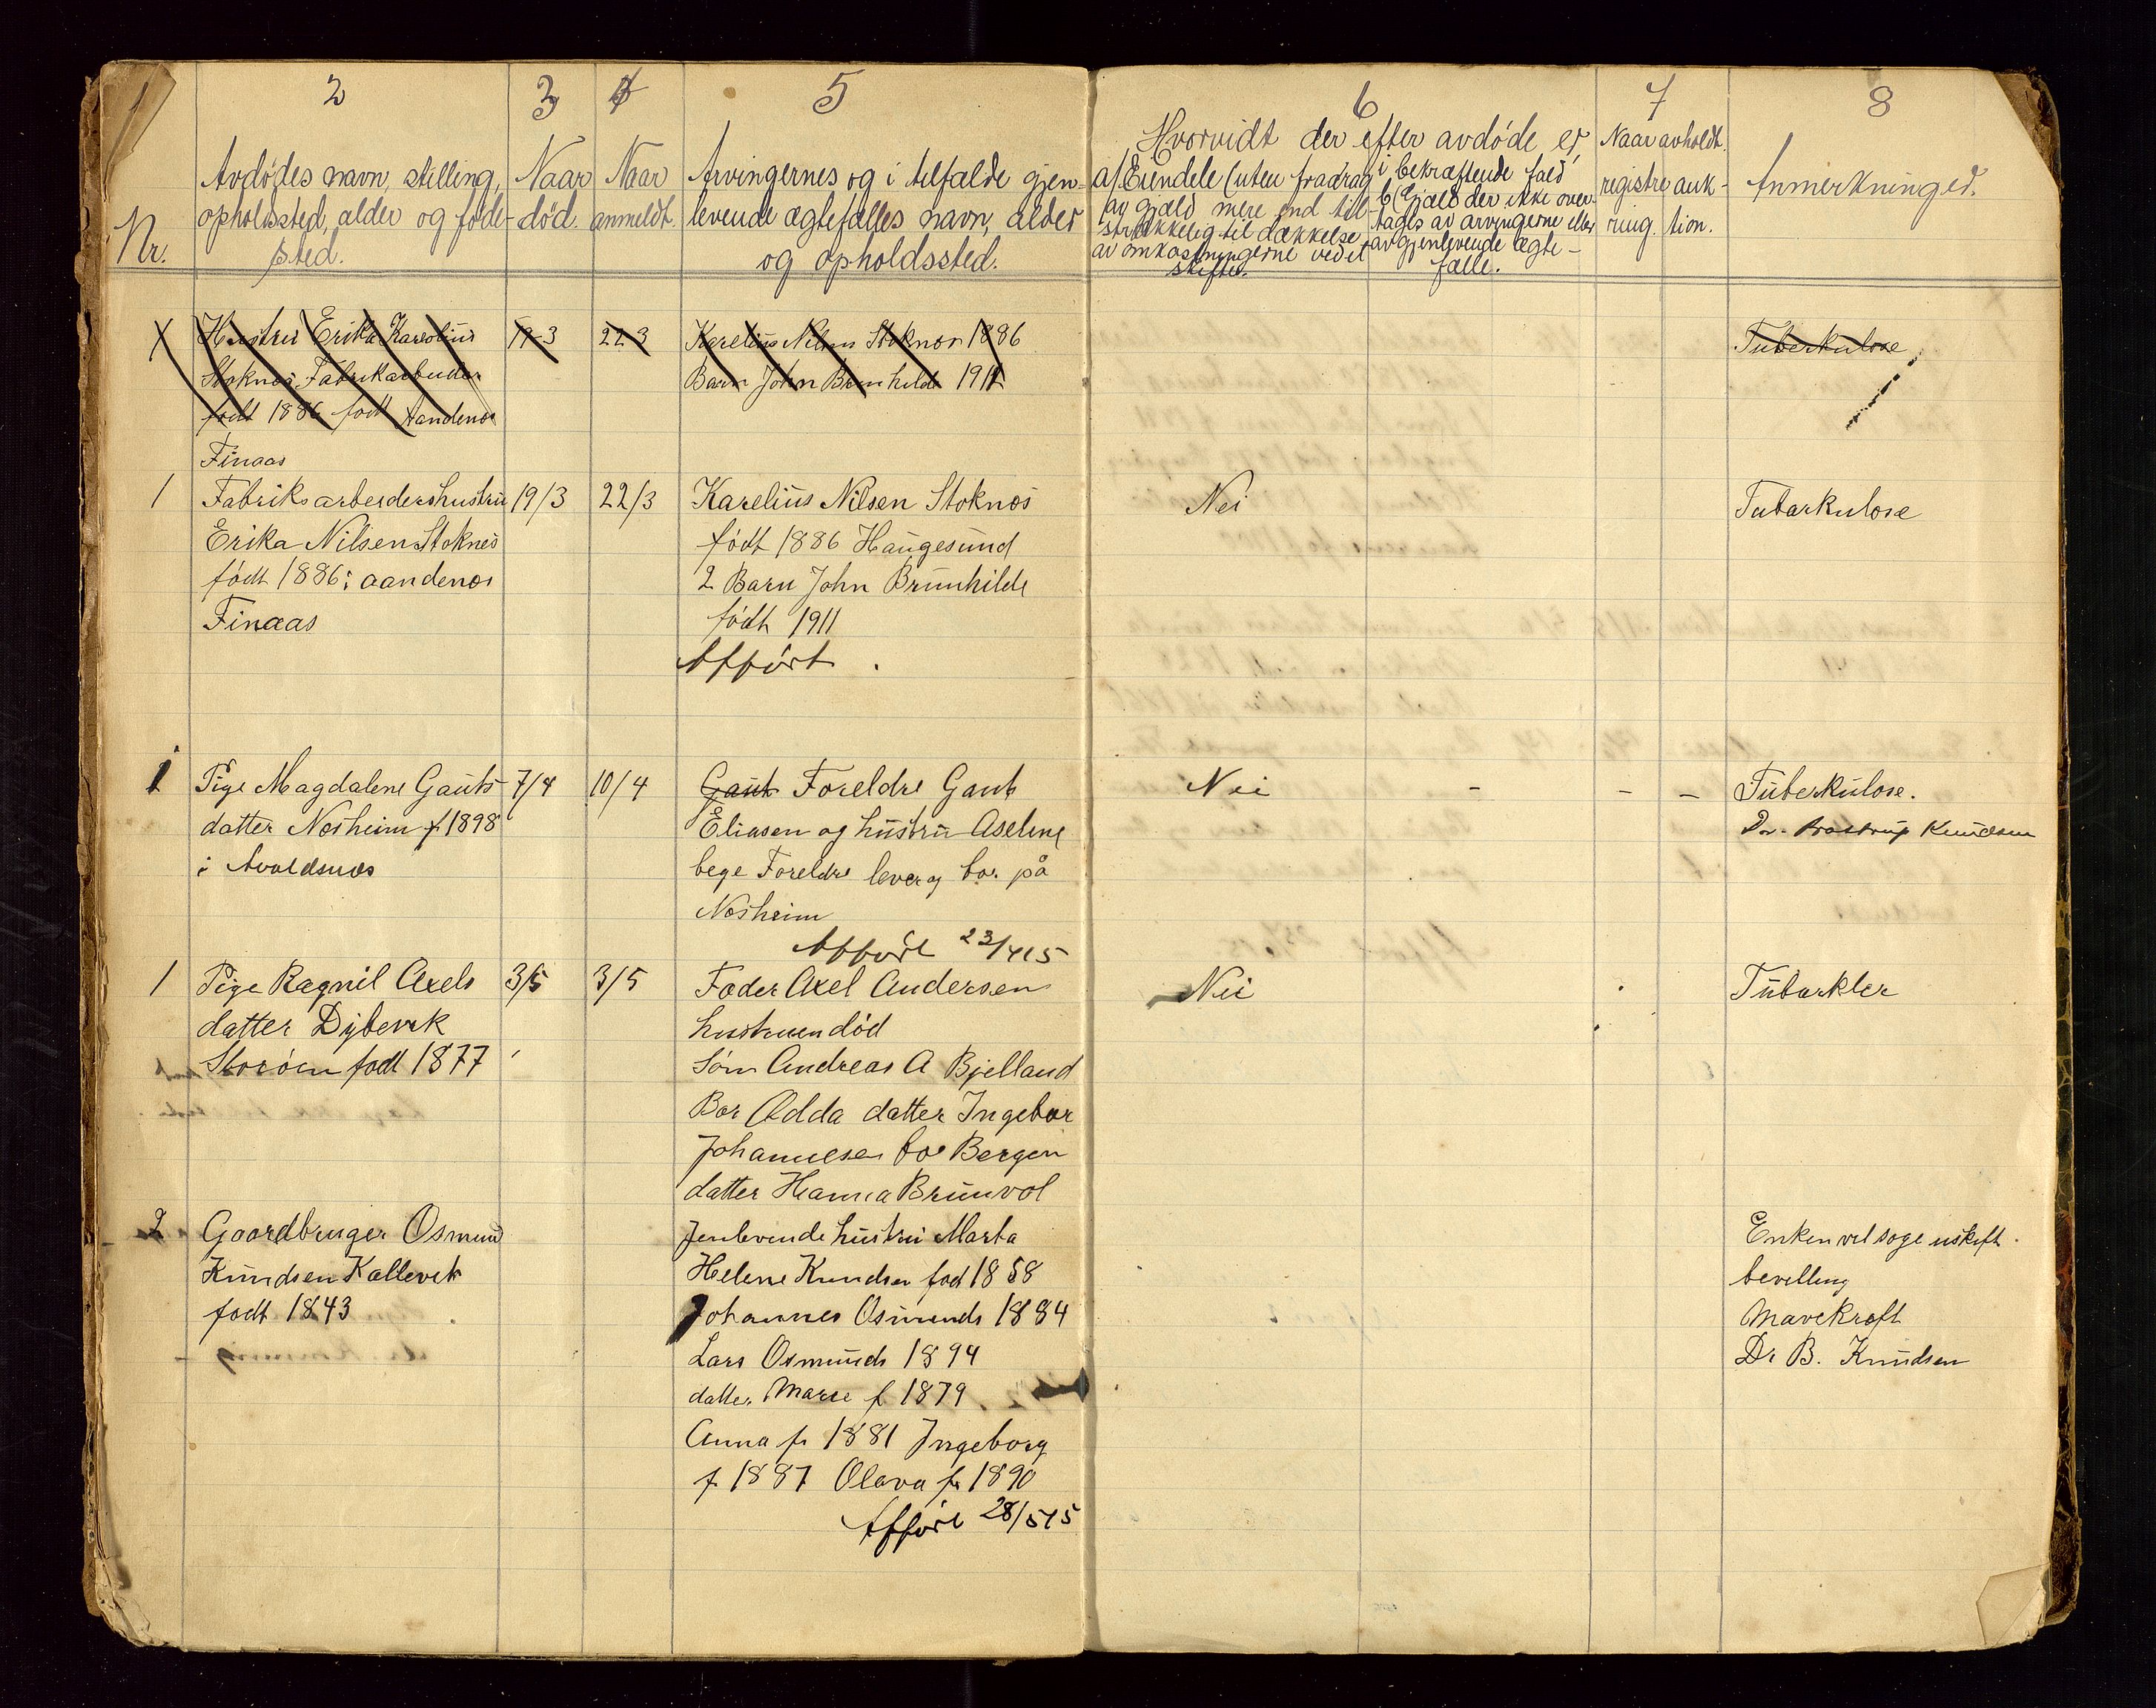 1 2 3 4 5 6 7 8
Nr.
Avdødes navn, stilling,
opholdssted, alder og føde-
sted.
Naar
død.
Naar
anmeldt.
Arvingernes og i tilfælde gjen-
levende ægtefælles navn, alder
og opholdssted.
Hvorvidt der efter avdøde er,
a/ Eiendele (uten fradrag
av gjæld mere end til-
strækkelig til dækkelse
av omkostningerne ved et
skifte.
i bekræftende fald
b (Gjæld der ikke over-
tages av arvingerne eller
av gjenlevende ægte-
fælle.
Naar avholdt.
registre auk-
ring. tion.
Anmerkninger.
1 Hustru Erika Karolius 19-3 22 3 Karelius Nilsen Stoknes 1886 Tuberkulose
Stoknes Fabrikarbeider Barn John Brunhilde 1911
født 1886 født Aandenes
Finaas
1 Fabriksarbeidershustru 19/3 22/3 Karelius Nilsen Stoknes Nei Tubarkulose
Erika Nilsen Stoknes født 1886 Haugesund
født 1886 i aandenes 2 Barn John Brunhilde
Finaas født 1911
Afført.
1 Pige Magdalene Gauts 7/4 10/4 Gaut Foreldre Gaut Nei - - - Tuberkulose.
datter Nosheim f 1898 Eliasen og hustru Aseline Dr. Brostrup Knudsen
i Avaldsnes bege Foreldre lever og bor på
Nosheim
Afført 23/4 15
1 Pige Ragnil Axels 3/5 3/5 Fader Axel Andersen Nei Tubarkler
datter Dybevik hustruen død
Storøen født 1877 Søn Andreas A Bjelland
Bor Odda datter Ingebor
Johannesen bor Bergen
datter Hanna Brunvol
2 Gaardbruger Osmun Jenlevende hustru Marta Enken vil søge uskift
Knudsen Kallevik Helene Knudsen fød 1858 bevilling
født 1843 Johannes Osmunds 1884 Mavekræft
Lars Osmunds 1894 Dr B. Knudsen
datter Marie f 1879
Anna f 1881 Ingeborg
f 1887 Olava f 1890
Afført 28/5 15